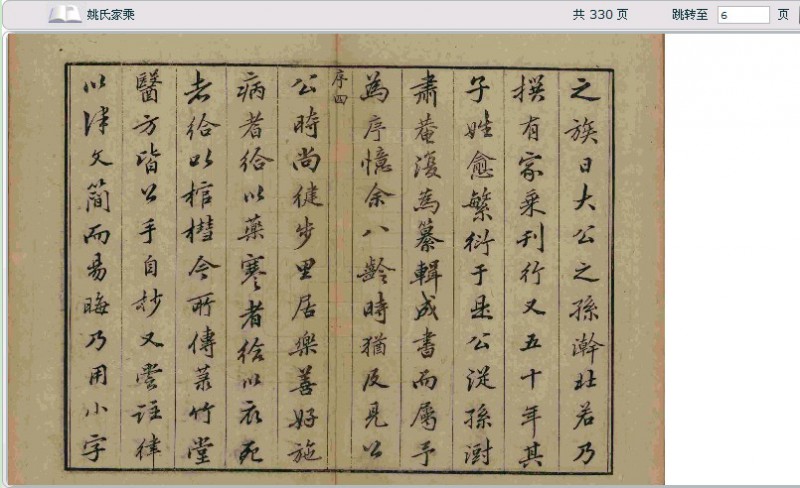 姚氏家乘
共 330 页
跳转至 6 页
之族日大公之孫澣北若乃
撰有家乘刊行又五十年其
子姓愈繁衍于是公從孫澍
肅菴復為纂輯成書而屬予
為序憶余八齡時猶及見公
序四
公時尚徤步里居樂善好施
病者給以藥寒者給以衣死
者給以棺槥今所傳菉竹堂
醫方皆公手自抄又嘗註律
以律文簡而易晦乃用小字